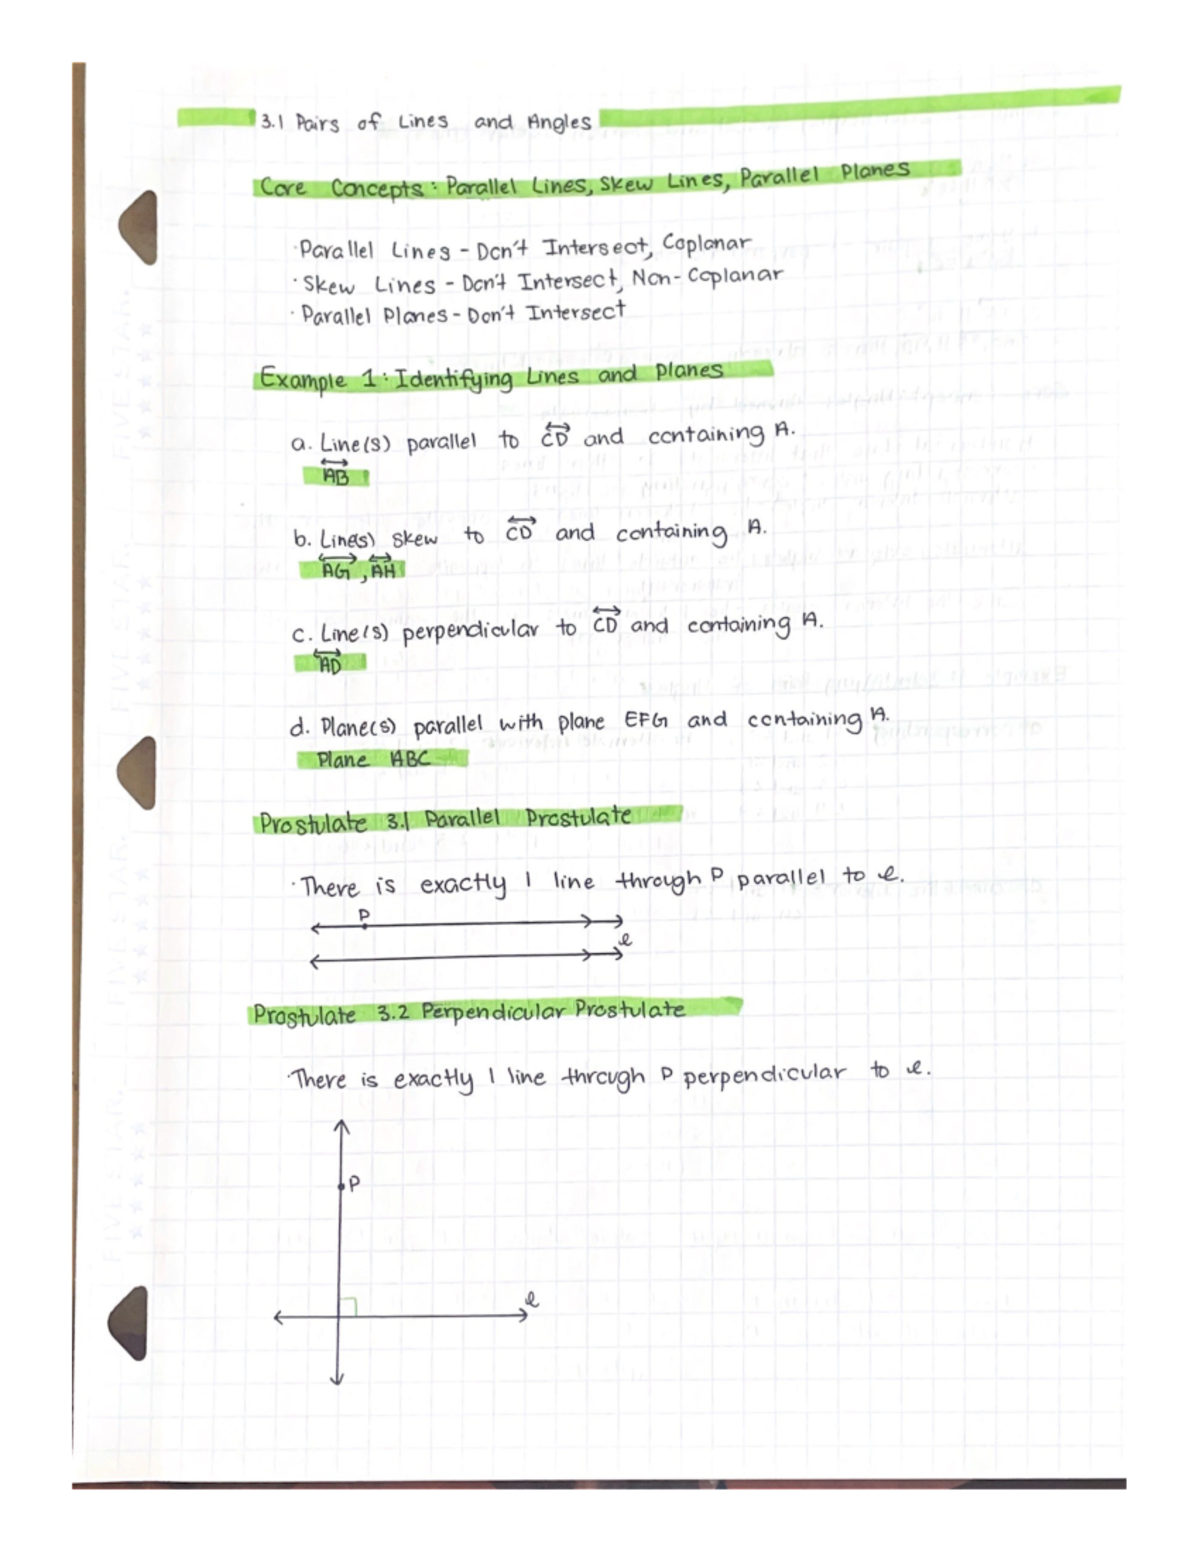 3.1 Pairs of Lines and Angles
Core Concepts: Parallel Lines, Skew Lines, Parallel Planes
·Parallel Lines - Don't Intersect, Coplanar
·Skew Lines - Don't Intersect, Non-Coplanar
·Parallel Planes - Don't Intersect
Example 1: Identifying Lines and Planes
a. Line(s) parallel to CD and containing A.
AB
b. Line(s) skew to CD and containing A.
AG, AH
c. Line(s) perpendicular to CD and containing A.
AD
d. Plane(s) parallel with plane EFG and containing A.
Plane ABC
Prostulate 3.1 Parallel Prostulate
·There is exactly 1 line through P parallel to ℓ.
P
ℓ
Prostulate 3.2 Perpendicular Prostulate
·There is exactly 1 line through P perpendicular to ℓ.
P
ℓ
FIVE STAR
FIVE STAR
FIVE STAR
FIVE STAR